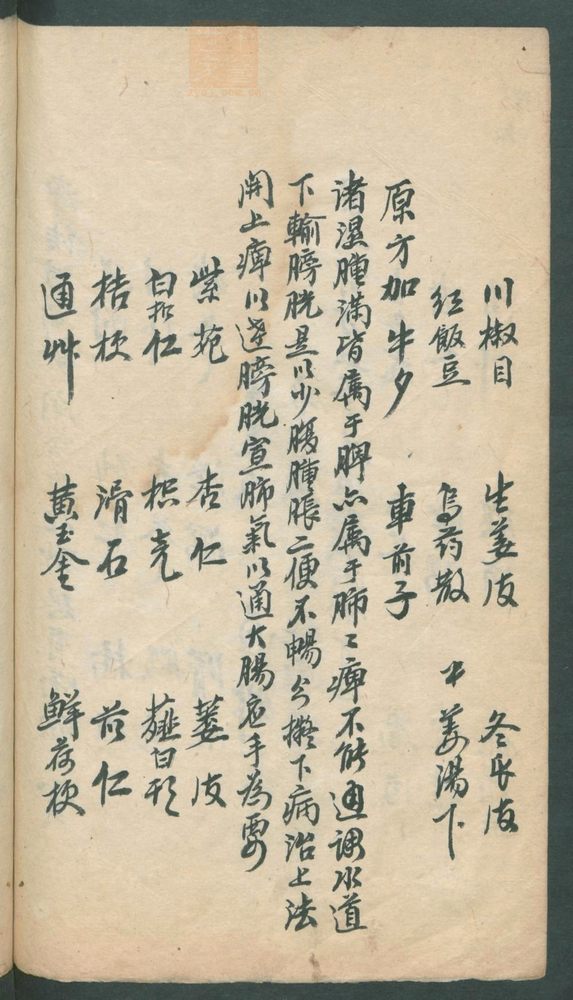 川椒目 生姜皮 冬瓜皮
红飯豆 烏药散 姜湯下
原方加牛夕 車前子
诸濕腫滿皆属于脾亦属于肺〻痺不能通调水道
下輸膀胱是以少腹腫脹二便不暢今擬下病治上法
開上痺以逹膀胱宣肺氣以通大腸应手為要
紫菀 杏仁 蒌皮
白蔻仁 枳壳 薤白
桔梗 滑石 苡仁
通艸 黄玉金 鮮荷梗